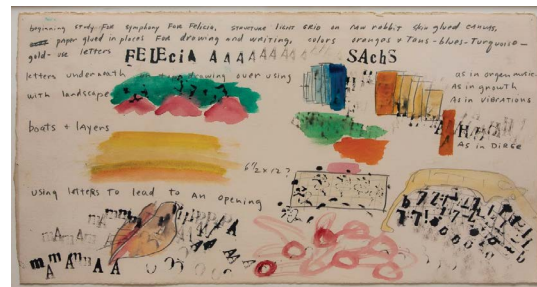 beginning study For Symphony For Felicia, structure light grid on raw rabbit skin glued canvas,
paper glued in places For drawing and writing, colors oranges + Tans-blues-Turquoise-
gold- use letters FELEciA AAAAAAA SAchS
letters underneath drawing over using
with landscape
as in organ music
As in growth
As in vibrations
boats + layers
AH
As in Dirge
6 1/2 x 12?
using letters to lead to an opening
mAmm
mAmAmAA